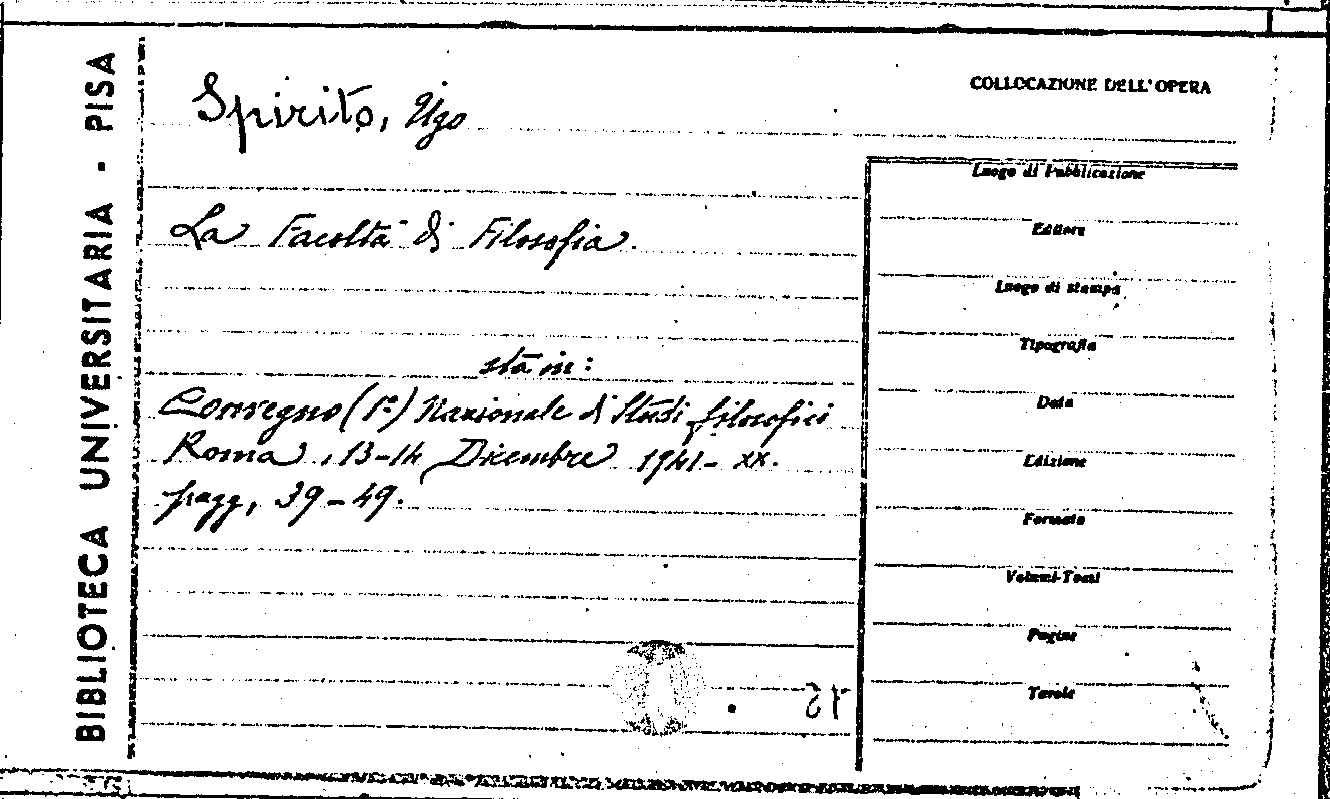 BIBLIOTECA UNIVERSITARIA - PISA
Spirito, Ugo
COLLOCAZIONE DELL'OPERA
La Facoltà di Filosofia.
sta in:
Convegno (1º) Nazionale di Studi filosofici
Roma, 13-14 Dicembre 1941-XX.
pagg, 39-49.
Luogo di Pubblicazione
Editore
Luogo di stampa
Tipografia
Data
Edizione
Formato
Volumi-Tomi
Pagine
Tavole